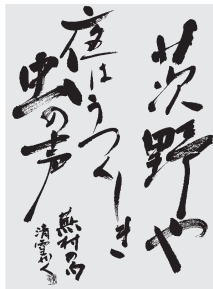 茨野や
夜はうつくしき
虫の声
蕪村の句
清雪かく